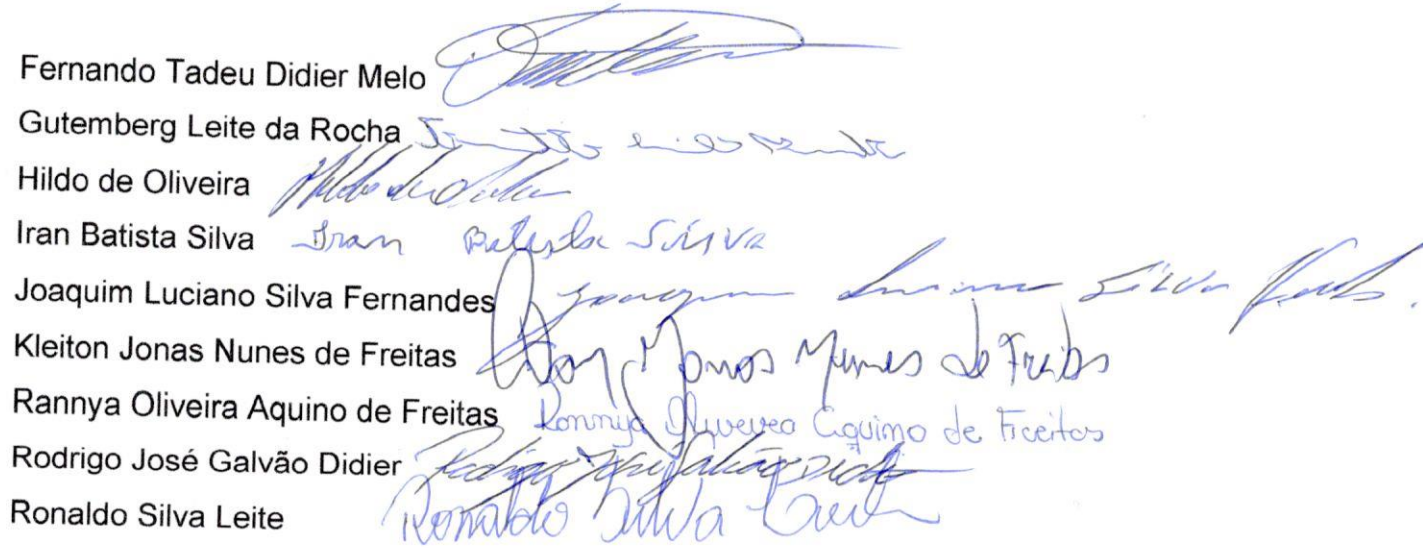 Fernando Tadeu Didier Melo
Gutemberg Leite da Rocha
Hildo de Oliveira
Iran Batista Silva Iran Batista Silva
Joaquim Luciano Silva Fernandes Joaquim Luciano Silva
Kleiton Jonas Nunes de Freitas Jonas Nunes de Freitas
Rannya Oliveira Aquino de Freitas Rannya Oliveira Aquino de Freitas
Rodrigo José Galvão Didier Rodrigo José Galvão Didier
Ronaldo Silva Leite Ronaldo Silva Leite